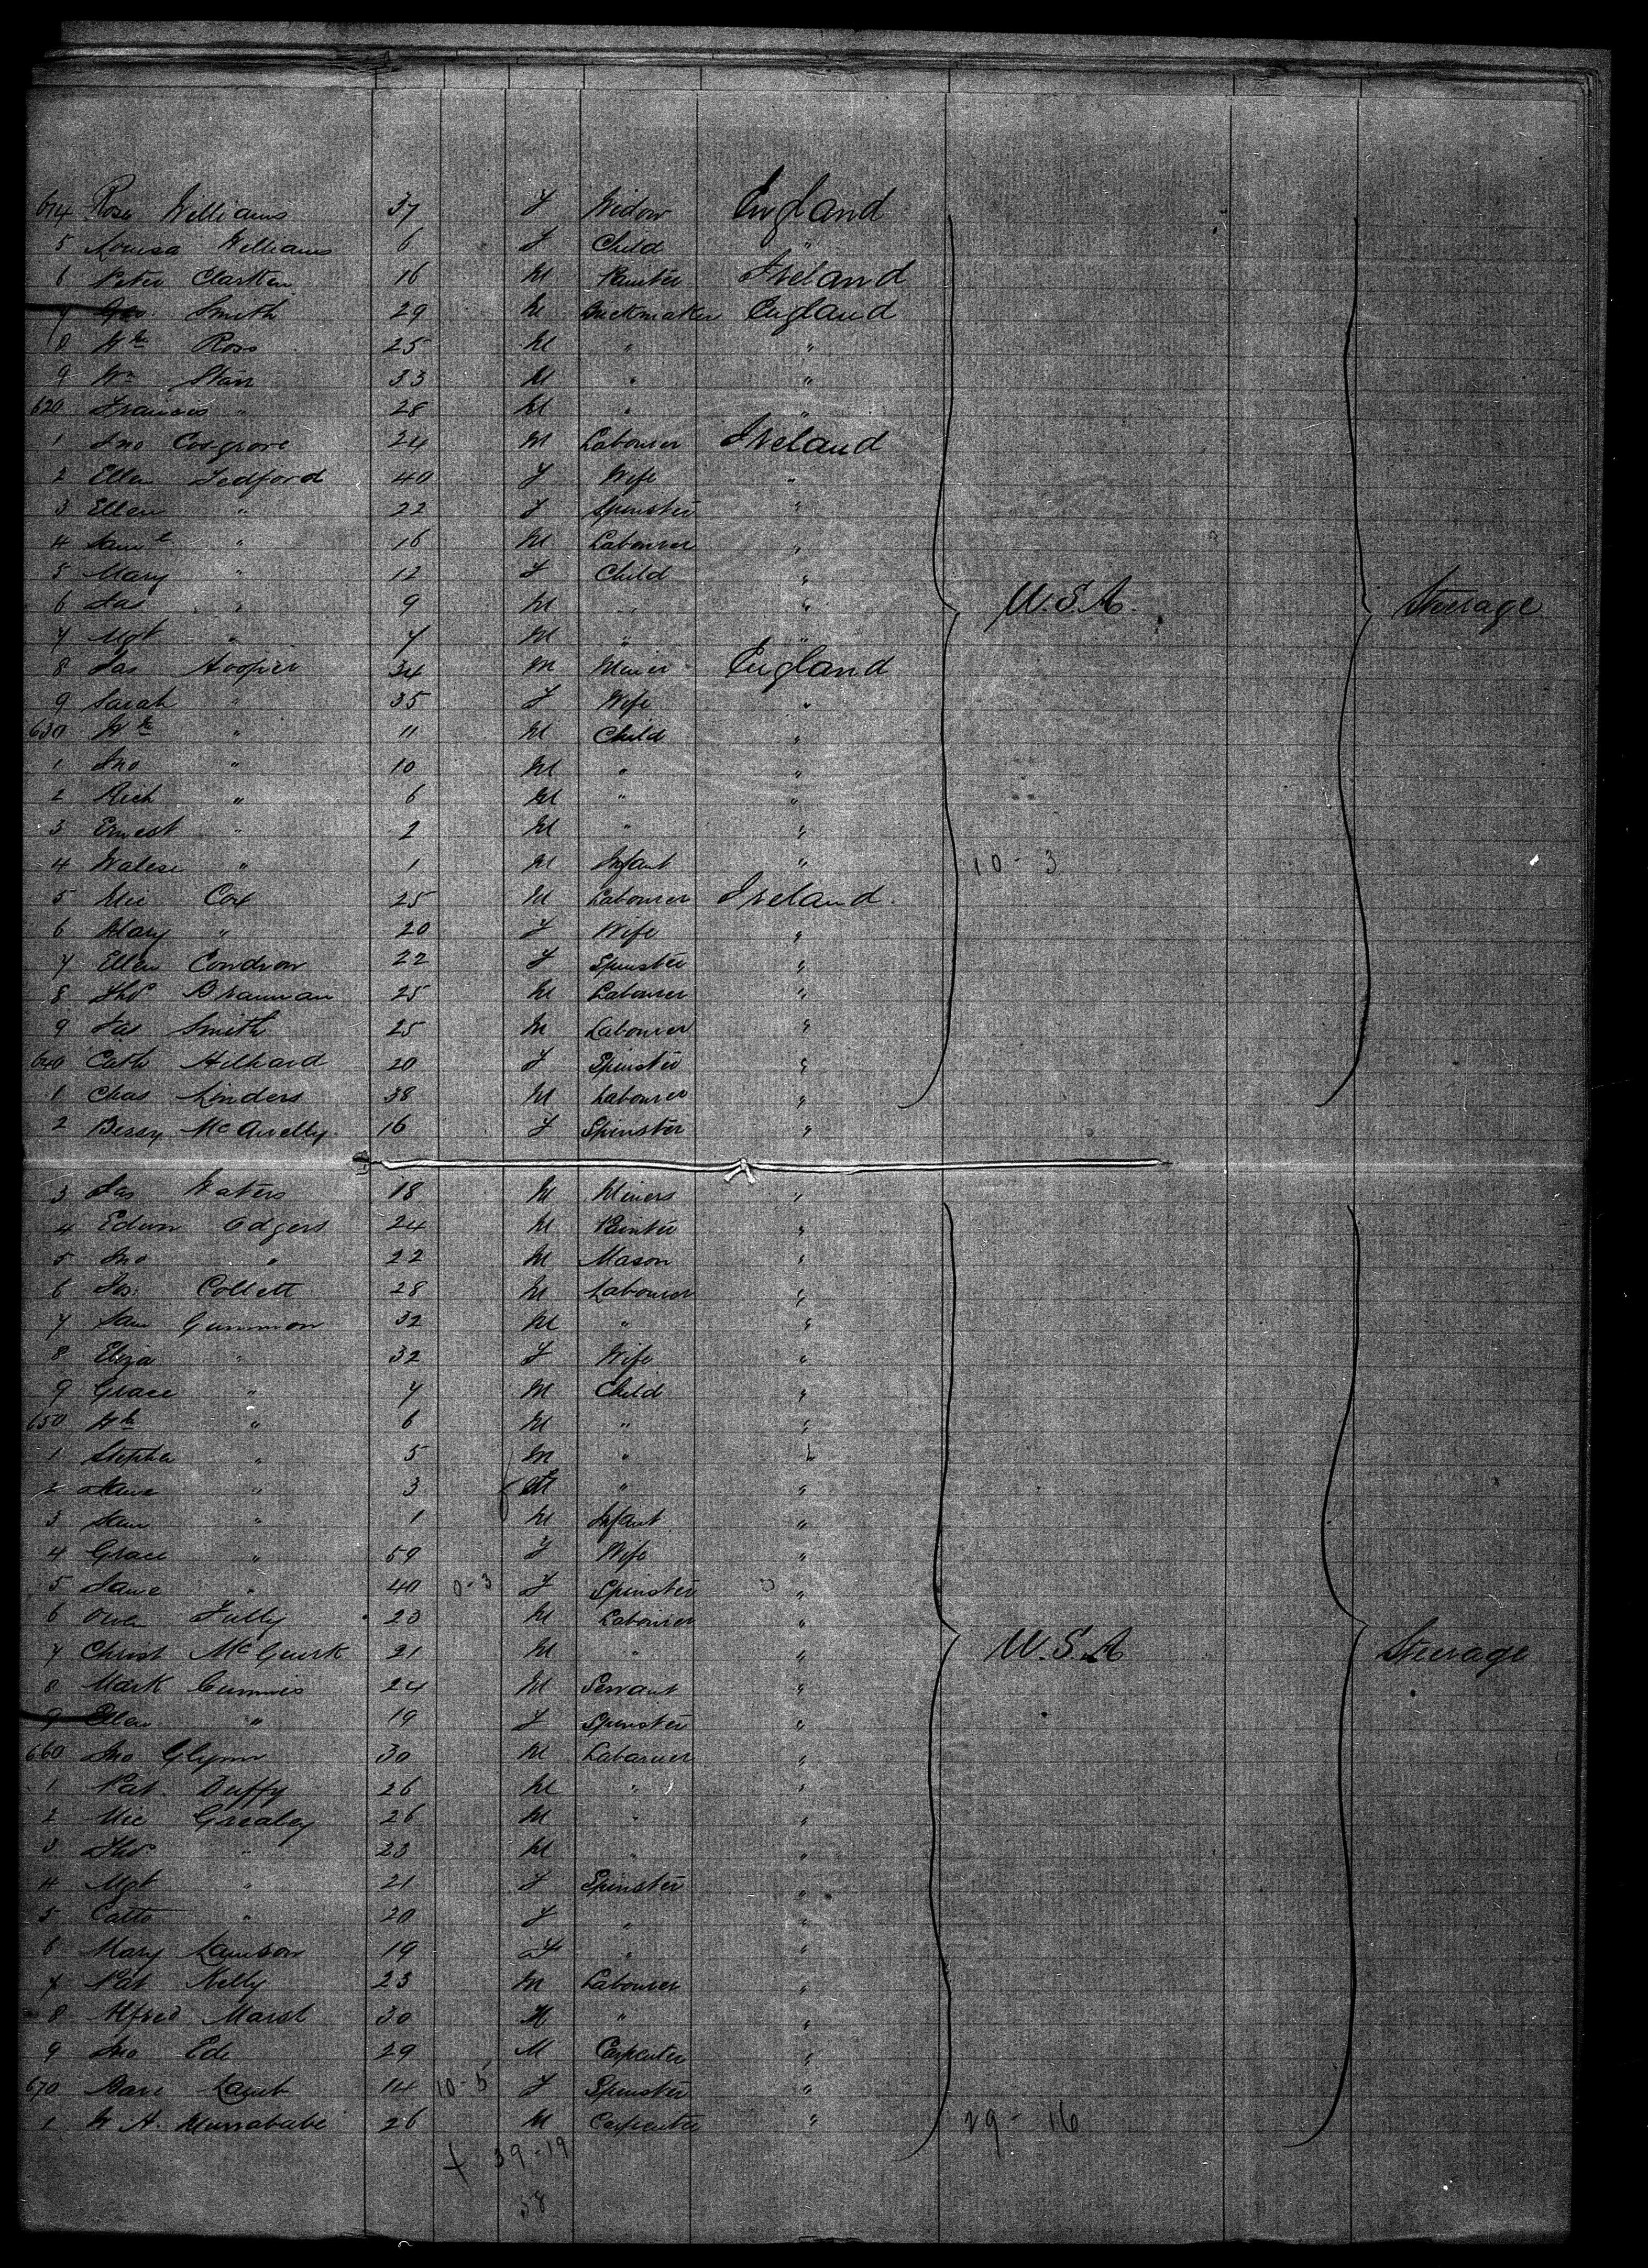 614 Rose Williams 37 F Widow England
5 Louisa Williams 6 F Child "
6 Peter Clarken 16 M Painter Ireland
7 Geo. Smith 29 M Brickmaker England
8 Wm Ross 25 M " "
9 Wm Starr 33 M " "
620 Francis " 28 M " "
1 Jno Cosgrove 24 M Labourer Ireland
2 Ellen Tedford 40 F Wife "
3 Ellen " 22 F Spinster "
4 Saml " 16 M Labourer "
5 Mary " 12 F Child "
6 Jas " 9 M " " U.S.A. Steerage
7 Mgt " 7 M " "
8 Jas Hooper 34 M Miner England
9 Sarah " 35 F Wife "
630 Wm " 11 M Child "
1 Jno " 10 M " "
2 Rich " 6 M " "
3 Ernest " 2 M " "
4 " 1 M Infant " 10 - 3
5 Mic Cox 25 M Labourer Ireland.
6 Mary " 20 F Wife "
7 Ellen Condron 22 F Spinster "
8 Thos Brannan 25 M Labourer "
9 Jas Smith 25 M Labourer "
640 Cath Hilliard 20 F Spinster "
1 Chas Linders 38 M Labourer "
2 Bessy 16 F Spinster "
3 Jas Waters 18 M Miners "
4 Edwin Odgers 24 M Painter "
5 Jno " 22 M Mason "
6 Jos: Collett 28 M Labourer "
7 Sam Gummon 32 M " "
8 Eliza " 32 F Wife "
9 Grace " 7 M Child "
650 Wm " 6 M " "
1 Stephen " 5 M " "
2 Jane " 3 " "
3 Sam " 1 M Infant "
4 Grace " 59 F Wife "
5 Jane " 40 0-3 F Spinster "
6 Owen Tully 20 M Labourer "
7 Christ McGuirk 21 M " " U.S.A Steerage
8 Mark Cummins 24 M Servant "
9 Ellen " 19 F Spinster "
660 Jno Glynn 30 M Labourer "
1 Pat. Duffy 26 M " "
2 Mic Grealey 26 M " "
3 Thos " 23 M " "
4 Mgt " 21 F Spinster "
5 Cath " 20 F " "
6 Mary 19 F " "
7 Pat Kelly 23 M Labourer "
8 Alfred Marsh 30 M " "
9 Jno Ede 29 M Carpenter "
670 Lamb 14 10-5 F Spinster "
1 26 M Carpenter " 29 - 16
39-19
58